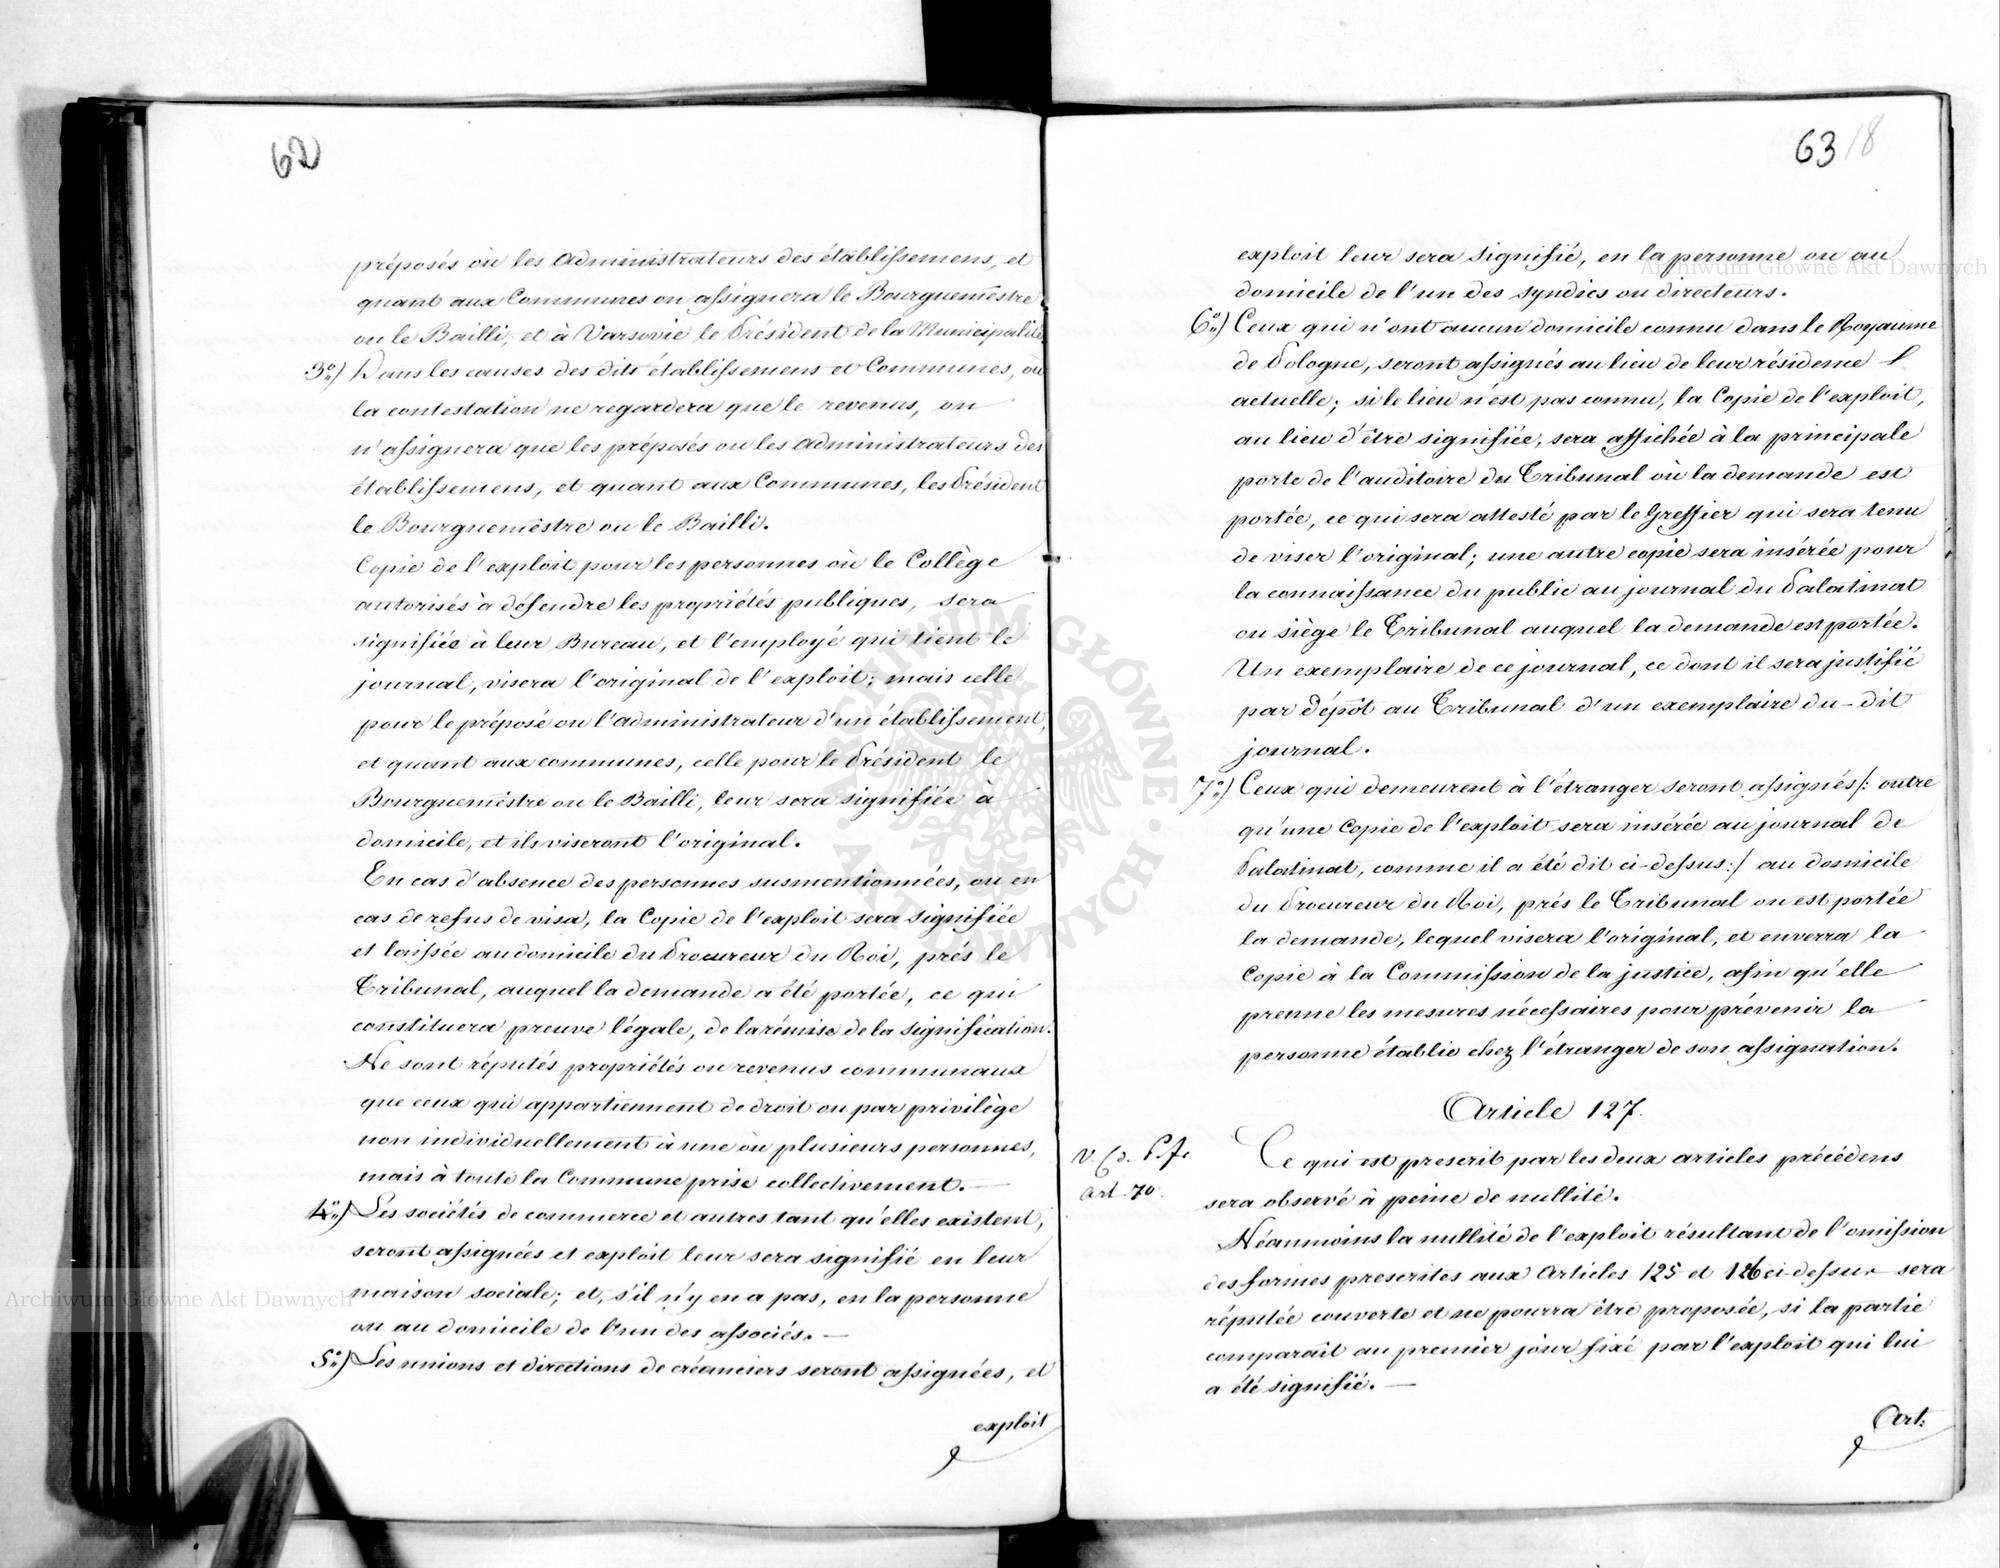 62
préposés où les Administrateurs des établissemens, et
quant aux Communes on assignera le Bourguemestre
ou le Bailli, et à Varsovie le Président de la Municipalité.
3o.) Dans les causes des dits établissemens et Communes, où
la contestation ne regardera que le revenus, on
n'assignera que les préposés ou les administrateurs des
établissemens, et quant aux Communes, les Président
le Bourguemestre ou le Bailli.
Copie de l'exploit pour les personnes où le Collège
autorisés à défendre les propriétés publiques, sera
signifiée à leur Bureau, et l'employé qui tient le
journal, visera l'original de l'exploit; mais celle
pour le préposé ou l'administrateur d'un établissement,
et quant aux communes, celle pour le Président le
Bourguemestre ou le Bailli, leur sera signifiée à
domicile, et ils viseront l'original.
En cas d'absence des personnes susmentionnées, ou en
cas de refus de visa, la Copie de l'exploit sera signifiée
et laissée au domicile du Procureur du Roi, prés le
Tribunal, auquel la demande a été portée, ce qui
constituera preuve légale, de la rémise de la signification.
Ne sont réputés propriétés ou revenus communaux
que ceux qui appartiennent de droit ou par privilège
non individuellement à une où plusieurs personnes,
mais à toute la Commune prise collectivement. —
4o.) Les sociétés de commerce et autres tant qu'elles existent,
seront assignées et exploit leur sera signifié en leur
maison sociale; et, s'il n'y en a pas, en la personne
ou au domicile de l'un des associés. —
5o.) Les unions et directions de créanciers seront assignées, et
exploit
63 18
exploit leur sera signifié, en la personne ou au
domicile de l'un des syndics ou directeurs.
6o.) Ceux qui n'ont aucun domicile connu dans le Royaume
de Pologne, seront assignés au lieu de leur résidence
actuelle; si le lieu n'est pas connu, la Copie de l'exploit,
au lieu d'être signifiée, sera affichée à la principale
porte de l'auditoire du Tribunal où la demande est
portée, ce qui sera attesté par le Greffier qui sera tenu
de viser l'original; une autre copie sera insérée pour
la connaissance du public au journal du Palatinat
ou siège le Tribunal auquel la demande est portée.
Un exemplaire de ce journal, ce dont il sera justifié
par dépôt au Tribunal d'un exemplaire du-dit
journal.
7o.) Ceux qui demeurent à l'étranger seront assignés /: outre
qu'une Copie de l'exploit sera insérée au journal de
Palatinat, comme il a été dit ci-dessus :/ au domicile
du Procureur du Roi, prés le Tribunal ou est portée
la demande, lequel visera l'original, et enverra la
Copie à la Commission de la justice, afin qu'elle
prenne les mesures nécessaires pour prévenir la
personne établie chez l'étranger de son assignation.
Article 127.
V. Co. P. fr.
art. 70.
Ce qui est prescrit par les deux articles précédens
sera observé à peine de nullité.
Néanmoins la nullité de l'exploit résultant de l'omission
des formes prescrites aux Articles 125 et 126 ci-dessur sera
réputée couverte et ne pourra être proposée, si la partie
comparaît au premier jour fixé par l'exploit qui lui
a été signifié. —
Art:
Archiwum Główne Akt Dawnych
Archiwum Główne Akt Dawnych
ARCHIWUM GŁÓWNE · AKT DAWNYCH ·